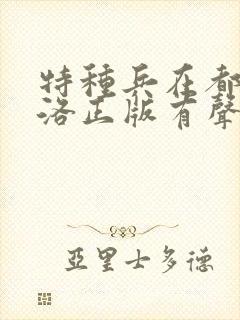 特種兵在都
洛正版有聲
亞里士多德